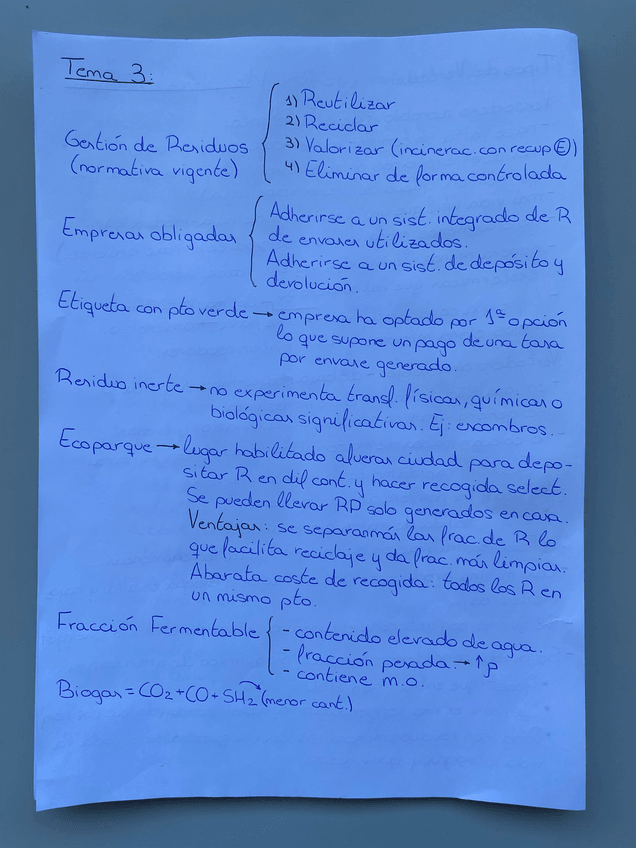 Tema 3:
Gestión de Residuos
(normativa vigente)
1) Reutilizar
2) Reciclar
3) Valorizar (incinerac. con recup E)
4) Eliminar de forma controlada
Empresas obligadas
Adherirse a un sist. integrado de R
de envases utilizados.
Adherirse a un sist. de depósito y
devolución.
Etiqueta con pto verde → empresa ha optado por 1ª opción
lo que supone un pago de una tasa
por envase generado.
Residuo inerte → no experimenta transf. físicas, químicas o
biológicas significativas. Ej: escombros.
Ecoparque → lugar habilitado afueras ciudad para depo-
sitar R en dif cont. y hacer recogida select.
Se pueden llevar RP solo generados en casa.
Ventajas: se separan más las frac. de R lo
que facilita reciclaje y da frac. más limpias.
Abarata coste de recogida: todos los R en
un mismo pto.
Fracción Fermentable
- contenido elevado de agua.
- fracción pesada → ↑ρ
- contiene m.o.
Biogas = CO₂ + CO + SH₂ (menor cant.)